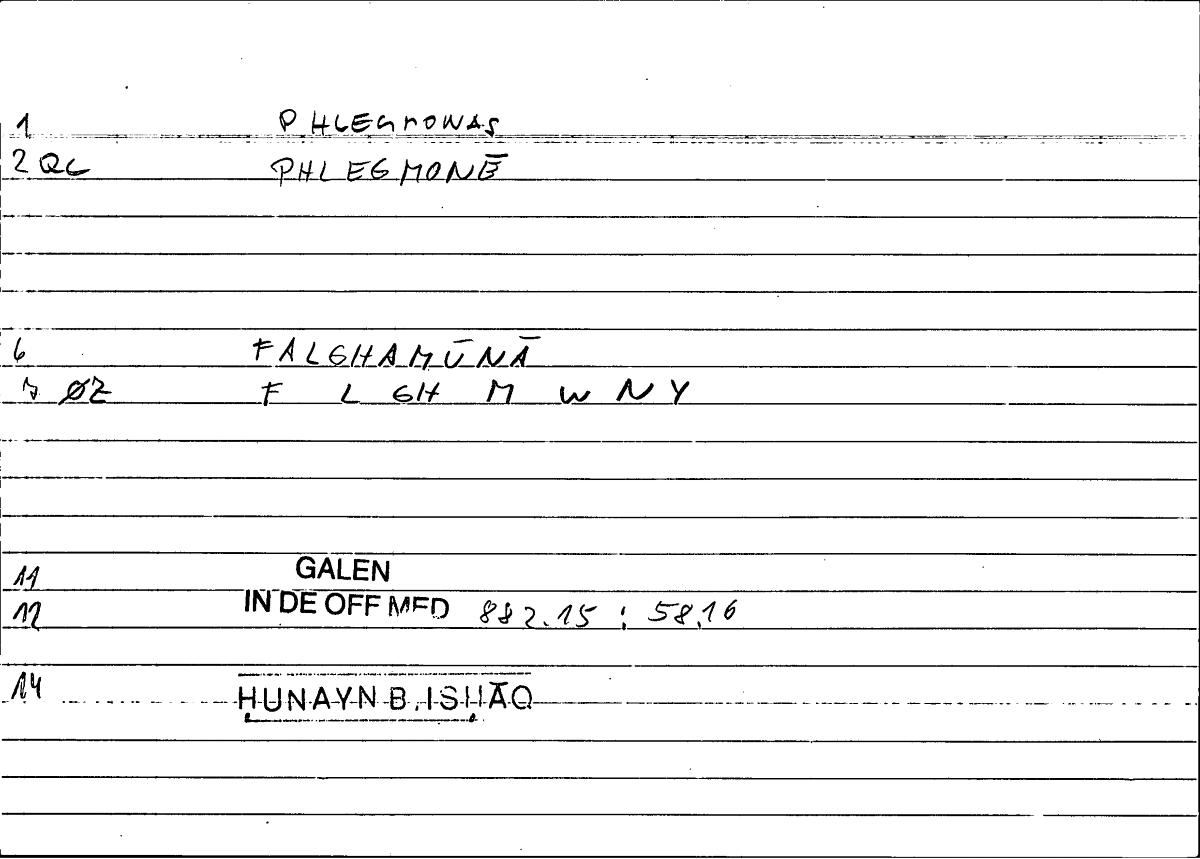 1 PHLEGMONAS
2 QC PHLEGMONĒ
6 FALGHAMŪNĀ
7 ØZ F L GH M W NY
11 GALEN
12 IN DE OFF MED 882.15 : 58,16
14 ḤUNAYN B. ISḤĀQ